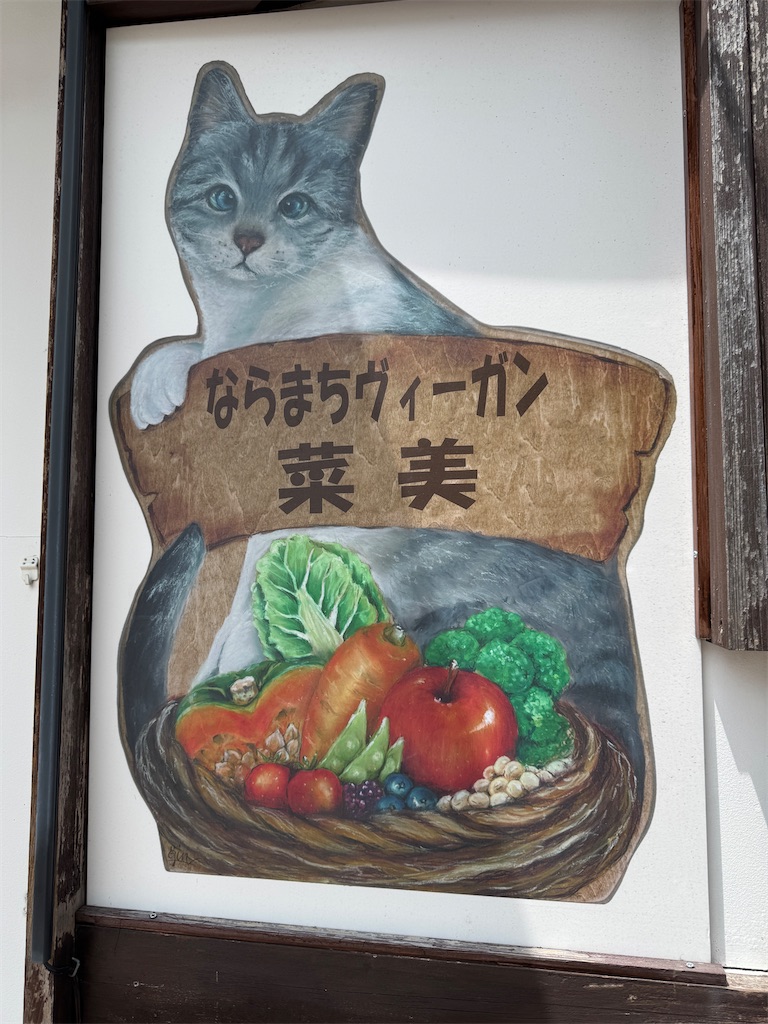 ならまちヴィーガン
菜美